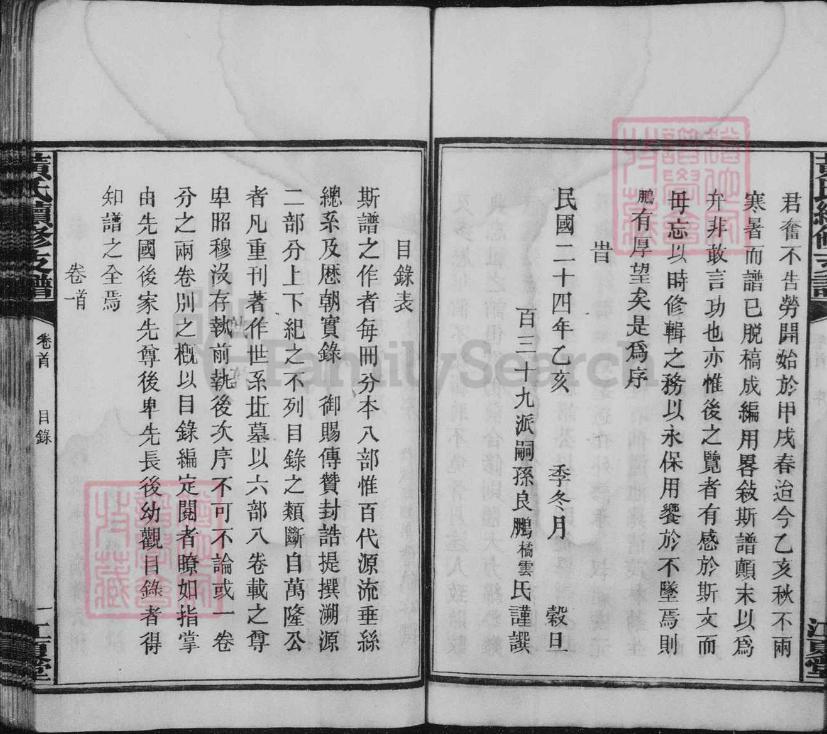 君奮不告勞開始於甲戌春迨今乙亥秋不兩
寒暑而譜已脫稿成編用畧敍斯譜顛末以爲
弁非敢言功也亦惟後之覽者有感於斯文而
毋忘以時修輯之務以永保用饗於不墜焉則
鵬有厚望矣是爲序
旹
民國二十四年乙亥 季冬月 穀旦
百三十九派嗣孫良鵬橘雲氏謹譔
黃氏續修支譜
卷首
目錄
一
江夏堂
目錄表
斯譜之作者每冊分本八部惟百代源流垂絲
總系及歷朝實錄 御賜傳贊封誥提撰溯源
二部分上下紀之不列目錄之類斷自萬隆公
者凡重刊著作世系坵墓以六部八卷載之尊
卑昭穆沒存孰前執後次序不可不論或一卷
分之兩卷別之槪以目錄編定閱者瞭如指掌
由先國後家先尊後卑先長後幼觀目錄者得
知譜之全焉
卷首
FamilySearch